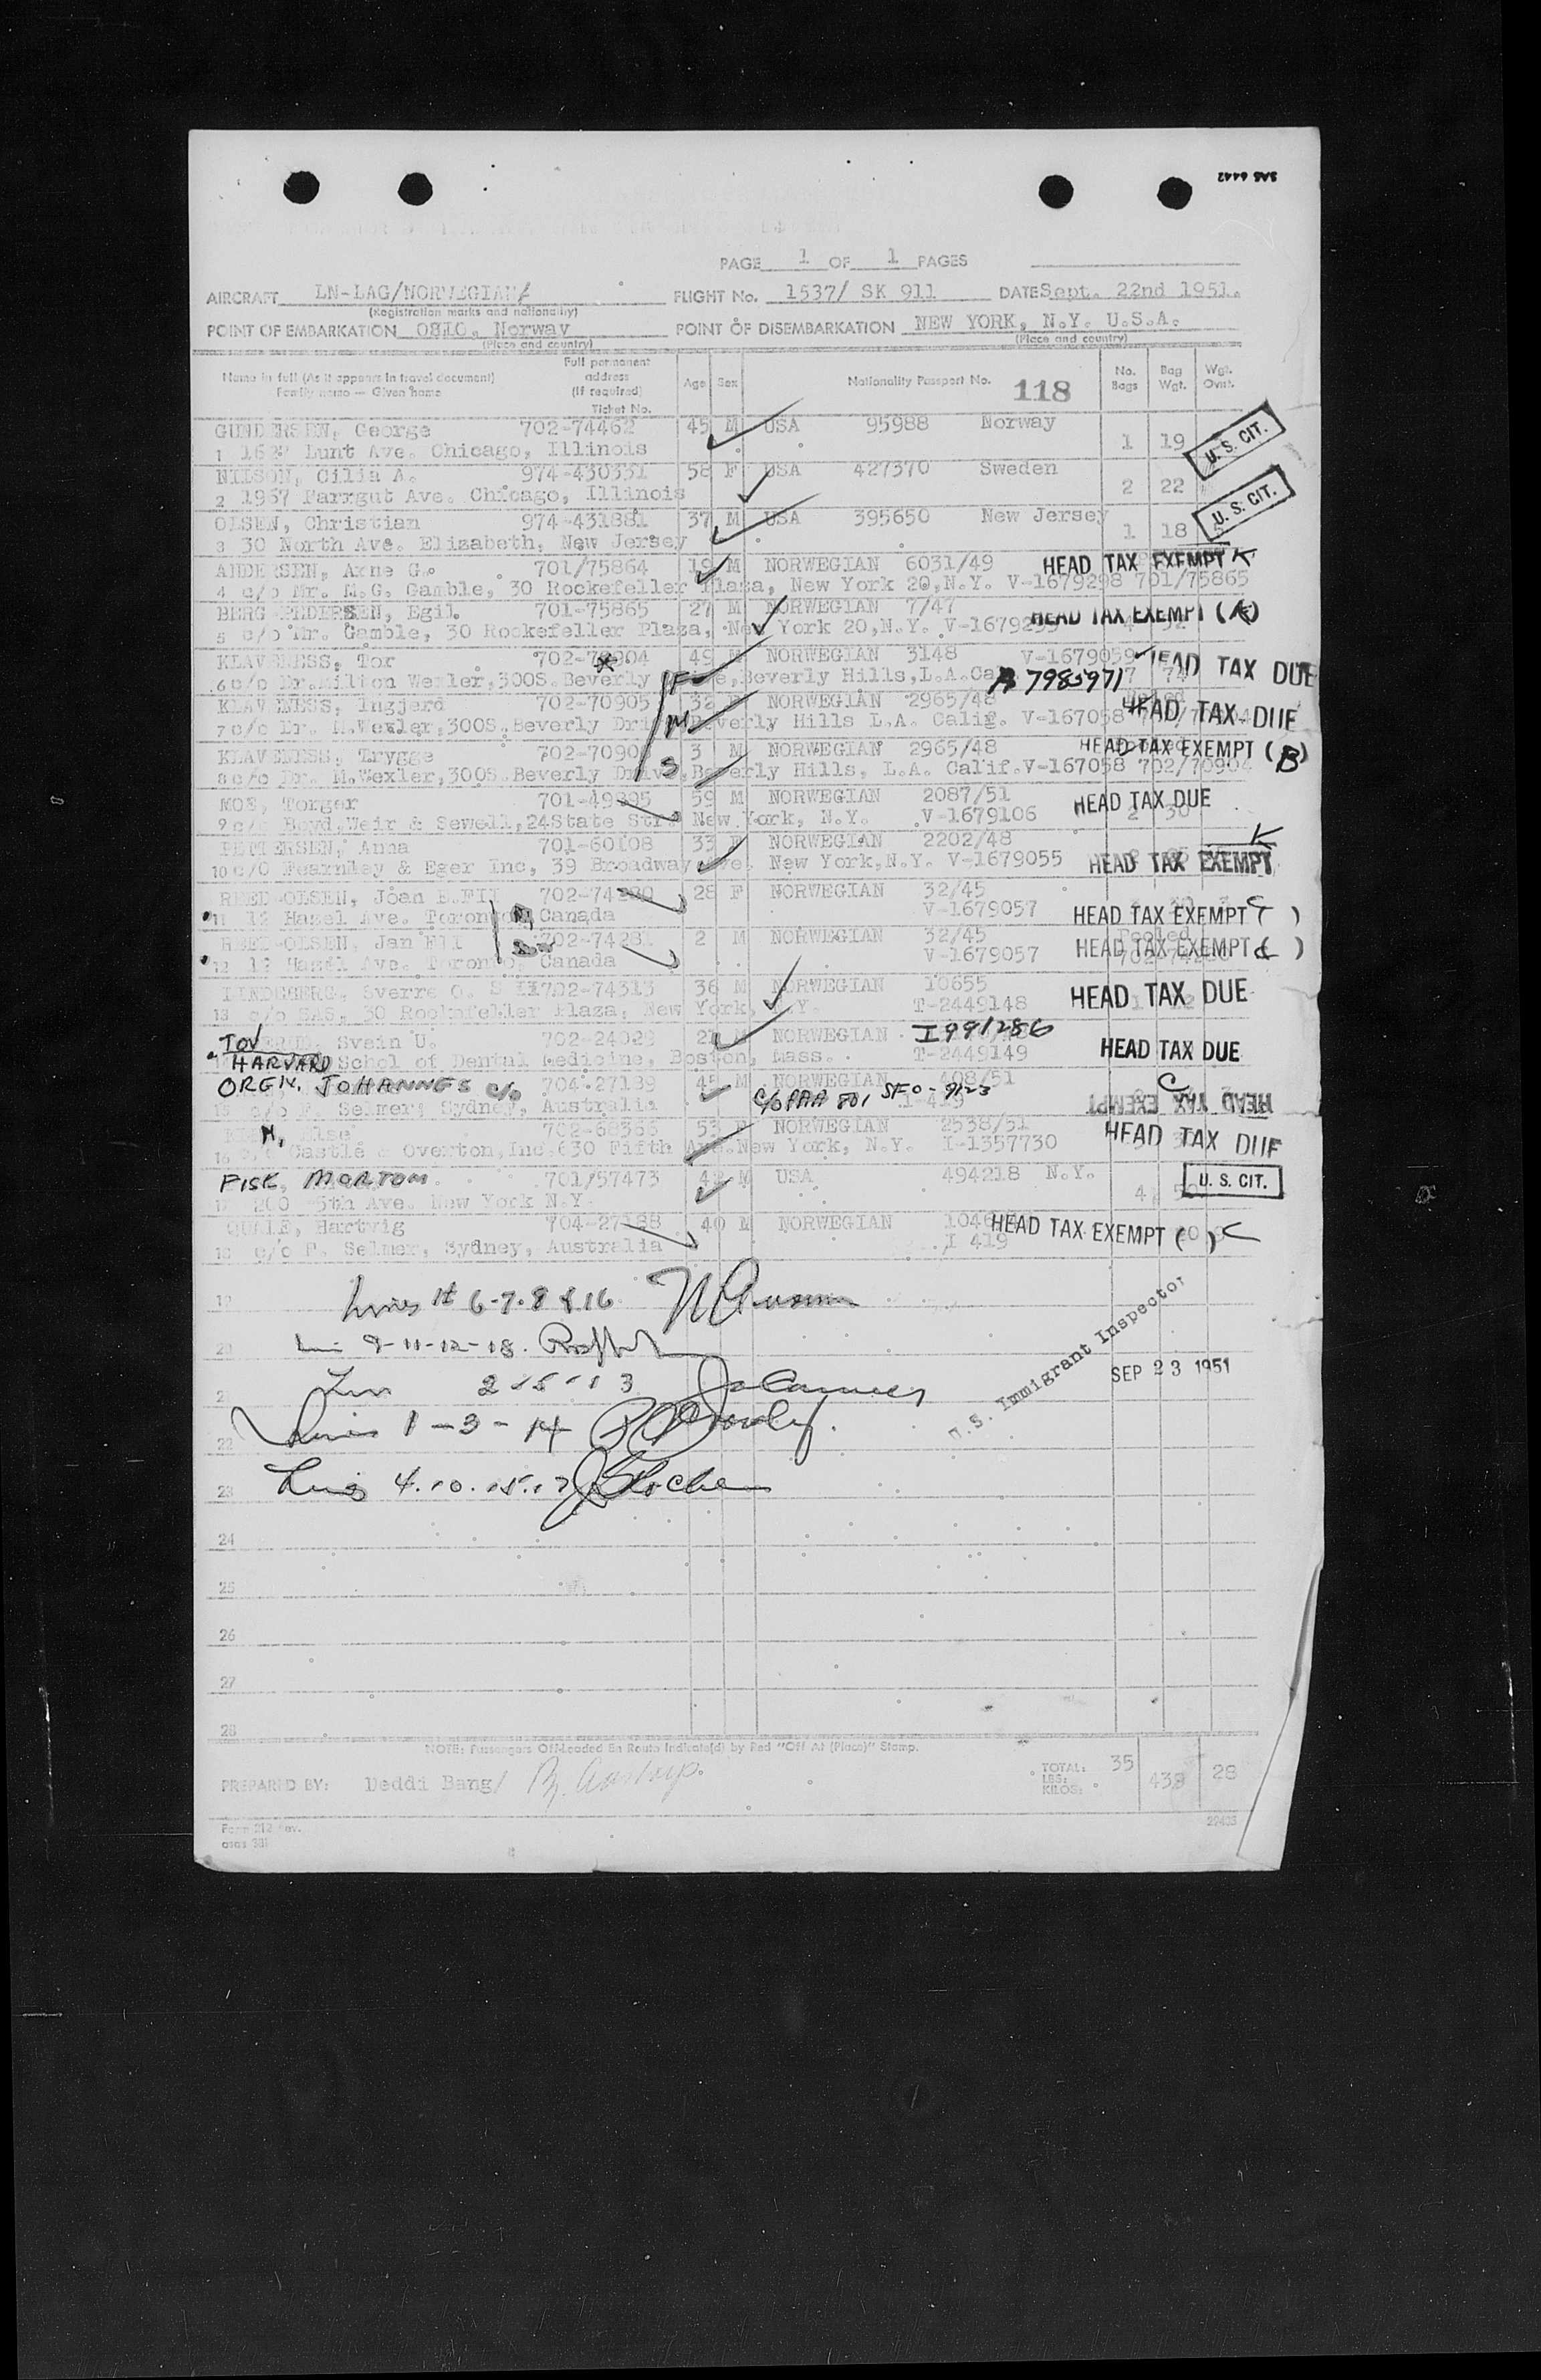 SAS 6442
PAGE 1 OF 1 PAGES
AIRCRAFT LN-LAG/NORWEGIAN FLIGHT No. 1537/ SK 911 DATE Sept. 22nd 1951.
(Registration marks and nationality)
POINT OF EMBARKATION OSLO, Norway POINT OF DISEMBARKATION NEW YORK, N.Y. U.S.A.
(Place and country) (Place and country)
Name in full (As it appears in travel document) Family name — Given name Full permanent address (If required) Ticket No. Age Sex Nationality Passport No. 118 No. Bags Bag Wgt. Wgt. Ovwt.
GUNDERSEN, George 702-74462 45 M USA 95988 Norway
1 Lunt Ave. Chicago, Illinois 1 19 U. S. CIT.
NILSON, Cilia A. 974-430331 58 F USA 427370 Sweden
2 1967 Farrgut Ave. Chicago, Illinois 2 22
OLSEN, Christian 974-431881 37 M USA 395650 New Jersey U. S. CIT.
3 30 North Ave. Elizabeth, New Jersey 1 18
ANDERSEN, Arne G. 701/75864 19 M NORWEGIAN 6031/49 HEAD TAX EXEMPT K
4 c/o Mr. M.G. Gamble, 30 Rockefeller Plaza, New York 20,N.Y. V-1679298 701/75865
BERG PEDERSEN, Egil. 701-75865 27 M NORWEGIAN 7/47 HEAD TAX EXEMPT (K)
5 c/o Mr. Gamble, 30 Rockefeller Plaza, New York 20,N.Y.
KLAVENESS, Tor 49 M NORWEGIAN 3148 V-1679059 HEAD TAX DUE
6 c/o Dr.Milton Wexler,300S.Beverly Beverly Hills,L.A. A 7985971
KLAVENESS, Ingjerd 702-70905 32 F NORWEGIAN 2965/48 HEAD TAX DUE
7 c/o Dr. M.Wexler,300S.Beverly Drive Beverly Hills L.A. Calif. V-167058
KLAVENESS, Trygge 3 M NORWEGIAN 2965/48 HEAD TAX EXEMPT (B)
8 c/o Dr. M.Wexler,300S.Beverly Drive,Beverly Hills, L.A. Calif.V-167058 702/70904
MOE, Torger 59 M NORWEGIAN 2087/51 HEAD TAX DUE
9 c/o Boyd,Weir & Sewell,24State Str. New York, N.Y. V-1679106 2 30
PETTERSEN, Anna 701-60108 33 F NORWEGIAN 2202/48 K
10 c/o Fearnley & Eger Inc, 39 Broadway Ave. New York,N.Y. V-1679055 HEAD TAX EXEMPT
REED-OLSEN, Joan E.FII 28 F NORWEGIAN 32/45
11 12 Hazel Ave. Toronto, Canada V-1679057 HEAD TAX EXEMPT ( ) C
REED-OLSEN, Jan FII 702-74281 2 M NORWEGIAN 32/45 Pooled
12 12 Hazel Ave. Toronto, Canada V-1679057 HEAD TAX EXEMPT ( )
LINDEBERG, Sverre O. 702-74313 36 M NORWEGIAN 10655
13 c/o SAS, 30 Rockefeller Plaza, New York, N.Y. T-2449148 HEAD TAX DUE
Svein U. 702-24029 21 M NORWEGIAN I 991286
HARVARD School of Dental Medicine, Boston, Mass. T-2449149 HEAD TAX DUE
JOHANNES c/o 704-27189 45 M NORWEGIAN 408/51 C
15 c/o P. Selmer, Sydney, Australia c/o PAA 801 SFO - 9/23 HEAD TAX EXEMPT
Else 702-68366 53 F NORWEGIAN 2538/51 HEAD TAX DUE
16 c/o Castle & Overton,Inc.630 Fifth Ave.New York, N.Y. I-1357730
FISK, MORTON 701/57473 42 M USA 494218 N.Y. U. S. CIT.
17 200 5th Ave. New York N.Y. 4
QUALE, Hartvig 40 M NORWEGIAN HEAD TAX EXEMPT ( ) C
18 c/o P. Selmer, Sydney, Australia I 419
19 Lines 6-7-8 & 16
20 9-11-12-18
21 SEP 23 1951
U.S. Immigrant Inspector
22 Lines 1-3-14
23 Lines
24
25
26
27
28
NOTE: Passengers Off-Loaded En Route Indicate(d) by Red "Off At (Place)" Stamp.
PREPARED BY: Deddi Bang/ TOTAL: LBS: KILOS: 35 438 28
Form 212 Rev.